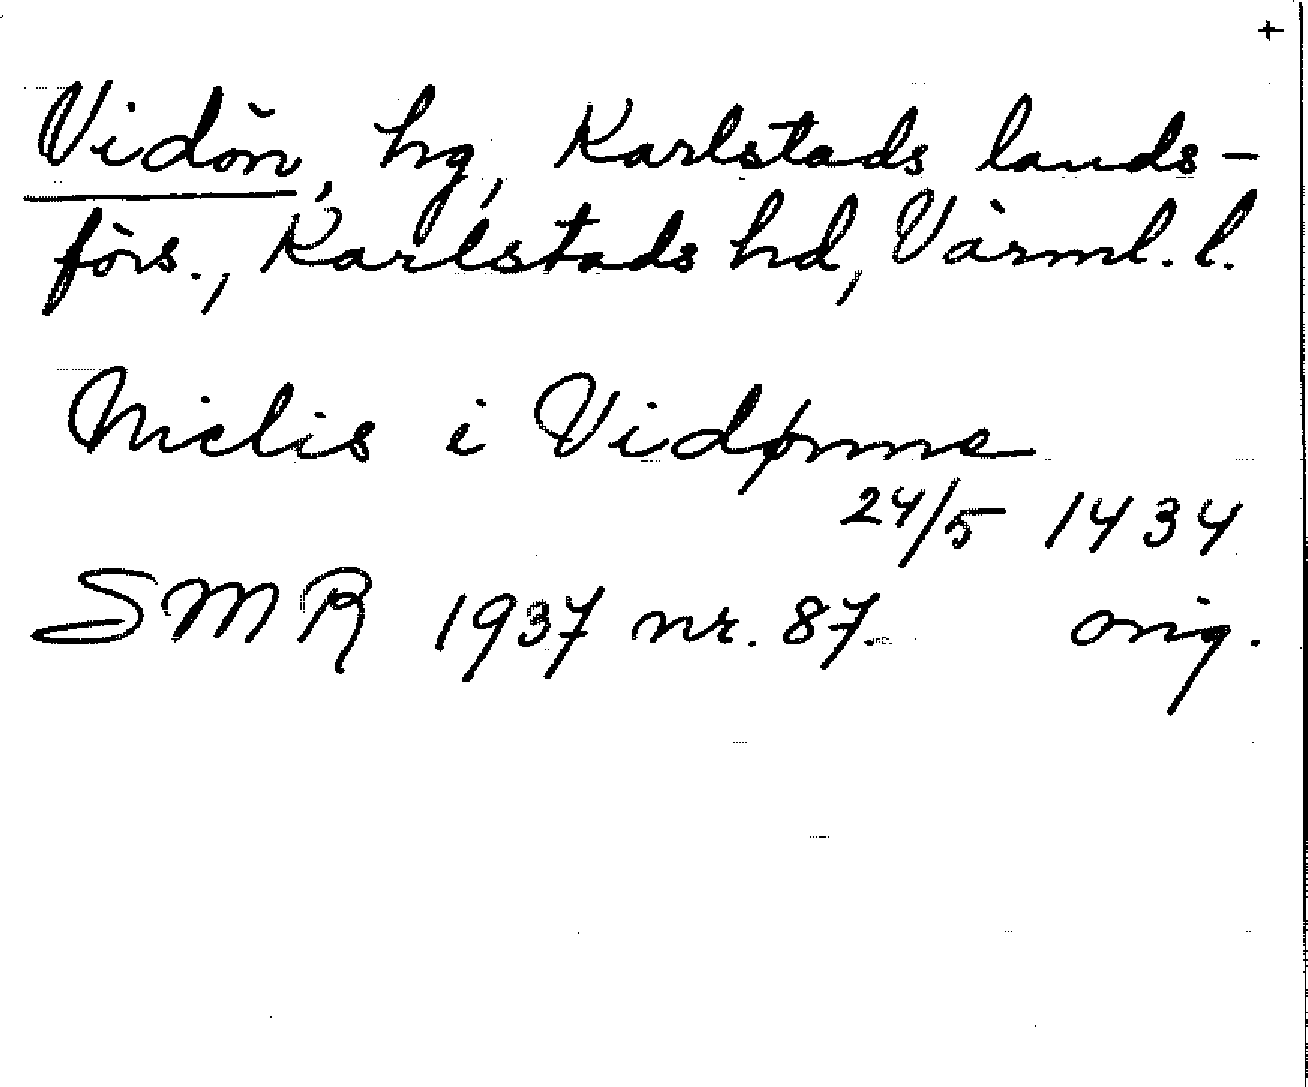 +
Vidön, hg, Karlstads lands-
förs., Karlstads hd, Värml. l.
Niclis i Vidønne
24/5 1434
SMR 1937 nr. 87. orig.